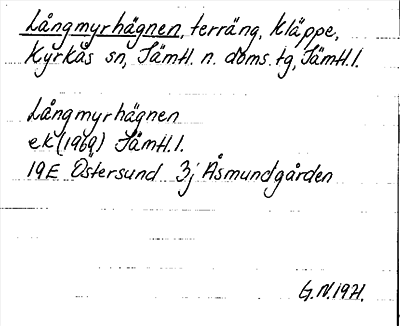 Långmyrhägnen, terräng, Kläppe,
Kyrkås sn, Jämtl. n. doms. tg, Jämtl. l.
Långmyrhägnen
ek (1969) Jämtl. l.
19E Östersund 3j Åsmundgården
G.N. 1971.